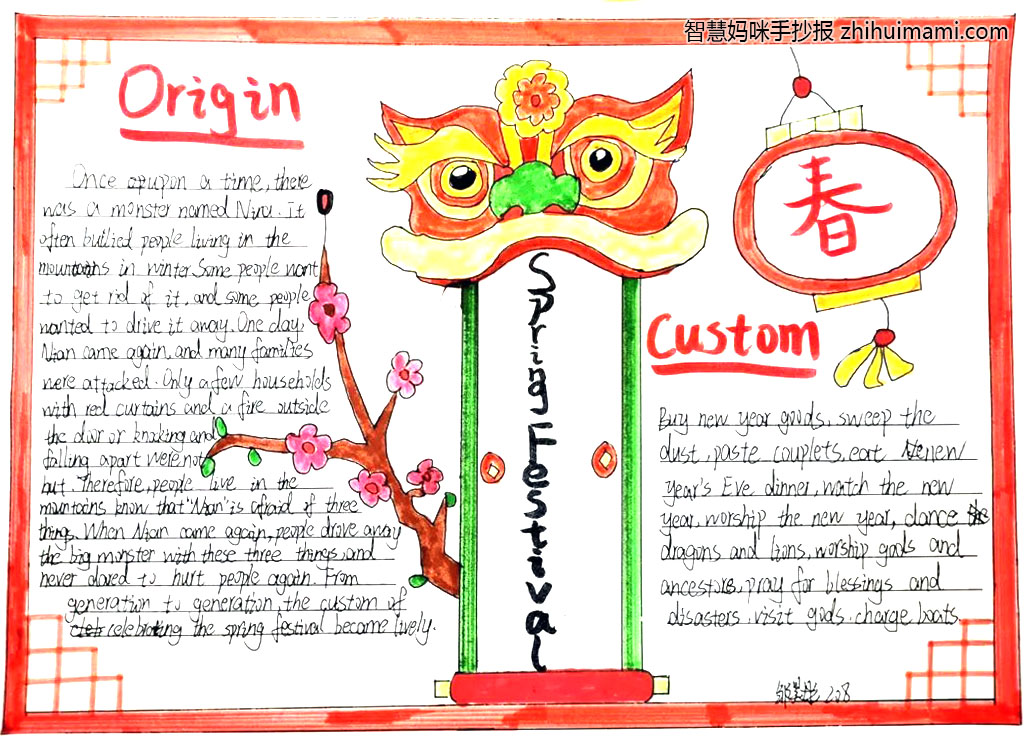 智慧妈咪手抄报 zhihuimami.com
Origin
Once upon a time, there
was a monster named Nian. It
often bullied people living in the
mountains in winter. Some people want
to get rid of it, and some people
wanted to drive it away. One day,
Nian came again, and many families
were attacked. Only a few households
with red curtains and a fire outside
the door or knoking and
falling apart were not
but. Therefore, people live in the
mountains know that "Nian" is afraid of three
things. When Nian came again, people drove away
the big monster with these three things, and
never dared to hurt people again. From
generation to generation, the custom of
celebrating the spring festival became lively.
Spring Festival
春
Custom
Buy new year goods, sweep the
dust, paste couplets, eat new
year's Eve dinner, watch the new
year, worship the new year, dance
dragons and lions, worship gods and
ancestors, pray for blessings and
disasters, visit gods, charge boats.
208